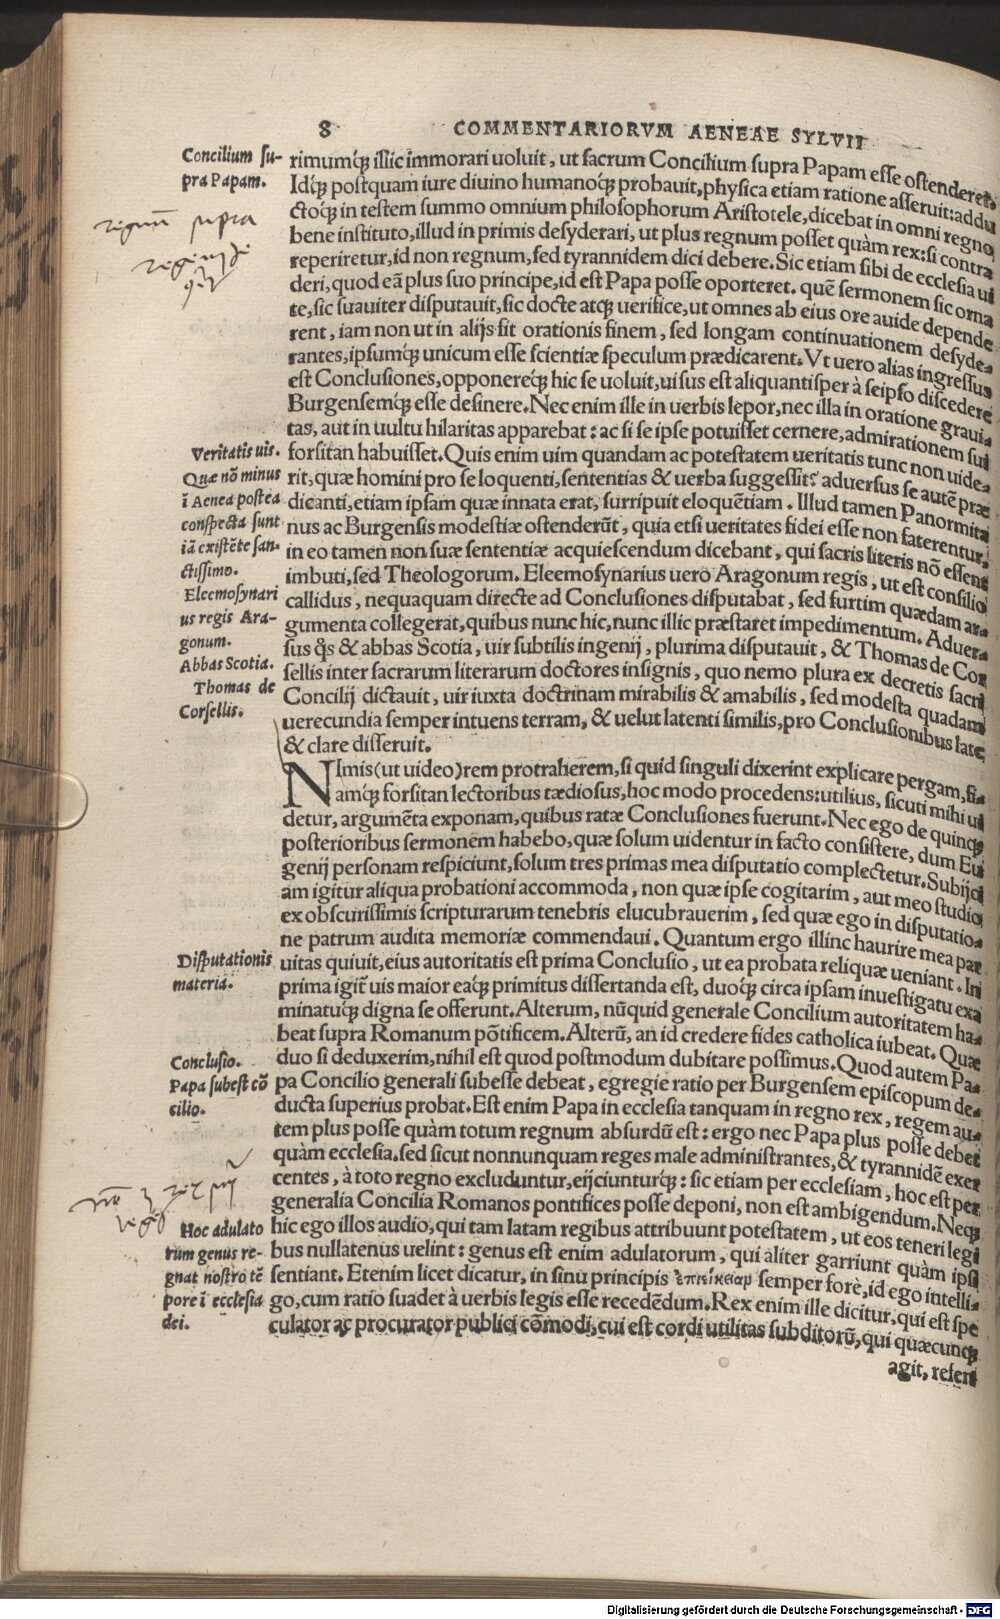 8 COMMENTARIORVM AENEAE SYLVII
Concilium su-
pra Papam.
rimumq́ʒ illic immorari uoluit, ut sacrum Concilium supra Papam esse ostenderet.
Idq́ʒ postquam iure diuino humanoq́ʒ probauit, physica etiam ratione asseruit: addu
ctoq́ʒ in testem summo omnium philosophorum Aristotele, dicebat in omni regno
bene instituto, illud in primis desyderari, ut plus regnum posset quàm rex: si contra
reperiretur, id non regnum, sed tyrannidem dici debere. Sic etiam sibi de ecclesia ui
deri, quod eā plus suo principe, id est Papa posse oporteret. quē sermonem sic orna
te, sic suauiter disputauit, sic docte atqʒ uerifice, ut omnes ab eius ore auide depende
rent, iam non ut in alijs fit orationis finem, sed longam continuationem desyde-
rantes, ipsumq́ʒ unicum esse scientiæ speculum prædicarent. Vt uero alias ingressus
est Conclusiones, opponereq́ʒ hic se uoluit, uisus est aliquantisper à seipso discedere
Burgensemq́ʒ esse desinere. Nec enim ille in uerbis lepor, nec illa in oratione graui-
tas, aut in uultu hilaritas apparebat: ac si se ipse potuisset cernere, admirationem sui
Veritatis uis.
forsitan habuisset. Quis enim uim quandam ac potestatem ueritatis tunc non uide-
Quæ nō minus
ī Aenea postea
conspecta sunt
iā existēte san-
ctissimo.
rit, quæ homini pro se loquenti, sententias & uerba suggessit? aduersus se autē præ
dicanti, etiam ipsam quæ innata erat, surripuit eloquētiam. Illud tamen Panormita
nus ac Burgensis modestiæ ostenderūt, quia etsi ueritates fidei esse non faterentur,
in eo tamen non suæ sententiæ acquiescendum dicebant, qui sacris literis nō essent
imbuti, sed Theologorum. Eleemosynarius uero Aragonum regis, ut est consilio
Eleemosynari
us regis Ara-
gonum.
callidus, nequaquam directe ad Conclusiones disputabat, sed furtim quædam ar-
gumenta collegerat, quibus nunc hic, nunc illic præstaret impedimentum. Aduer-
Abbas Scotia.
sus q̄s & abbas Scotia, uir subtilis ingenij, plurima disputauit, & Thomas de Cor
Thomas de
Corsellis.
sellis inter sacrarum literarum doctores insignis, quo nemo plura ex decretis sacri
Concilij dictauit, uir iuxta doctrinam mirabilis & amabilis, sed modesta quadam
uerecundia semper intuens terram, & uelut latenti similis, pro Conclusionibus late
& clare disseruit.
NImis (ut uideo) rem protraherem, si quid singuli dixerint explicare pergam, si-
amq́ʒ forsitan lectoribus tædiosus, hoc modo procedens: utilius, sicuti mihi ui
detur, argumēta exponam, quibus ratæ Conclusiones fuerunt. Nec ego de quinqʒ
posterioribus sermonem habebo, quæ solum uidentur in facto consistere, dum Eu
genij personam respiciunt, solum tres primas mea disputatio complectetur. Subijci
am igitur aliqua probationi accommoda, non quæ ipse cogitarim, aut meo studio
ex obscurissimis scripturarum tenebris elucubrauerim, sed quæ ego in disputatio-
ne patrum audita memoriæ commendaui. Quantum ergo illinc haurire mea par
Disputationis
materia.
uitas quiuit, eius autoritatis est prima Conclusio, ut ea probata reliquæ ueniant. In
prima igit̃ uis maior eaq́ʒ primitus dissertanda est, duoq́ʒ circa ipsam inuestigatu exa
minatuq́ʒ digna se offerunt. Alterum, nūquid generale Concilium autoritatem ha-
beat supra Romanum pōtificem. Alterū, an id credere fides catholica iubeat. Quæ
Conclusio.
Papa subest cō
cilio.
duo si deduxerim, nihil est quod postmodum dubitare possimus. Quod autem Pa-
pa Concilio generali subesse debeat, egregie ratio per Burgensem episcopum de-
ducta superius probat. Est enim Papa in ecclesia tanquam in regno rex, regem au-
tem plus posse quàm totum regnum absurdū est: ergo nec Papa plus posse debet
quàm ecclesia. sed sicut nonnunquam reges male administrantes, & tyrannidē exer
centes, à toto regno excluduntur, eijciunturq́ʒ: sic etiam per ecclesiam, hoc est per
generalia Concilia Romanos pontifices posse deponi, non est ambigendum. Neqʒ
Hoc adulato
rum genus re-
gnat nostro tē
pore ī ecclesia
dei.
hic ego illos audio, qui tam latam regibus attribuunt potestatem, ut eos teneri legi
bus nullatenus uelint: genus est enim adulatorum, qui aliter garriunt quàm ipsi
sentiant. Etenim licet dicatur, in sinu principis ἐπιείκειαμ semper forè, id ego intelli-
go, cum ratio suadet à uerbis legis esse recedēdum. Rex enim ille dicitur, qui est spe
culator ac procurator publici cōmodi, cui est cordi utilitas subditorū, qui quæcunqʒ
agit, refert
Digitalisierung gefördert durch die Deutsche Forschungsgemeinschaft - DFG